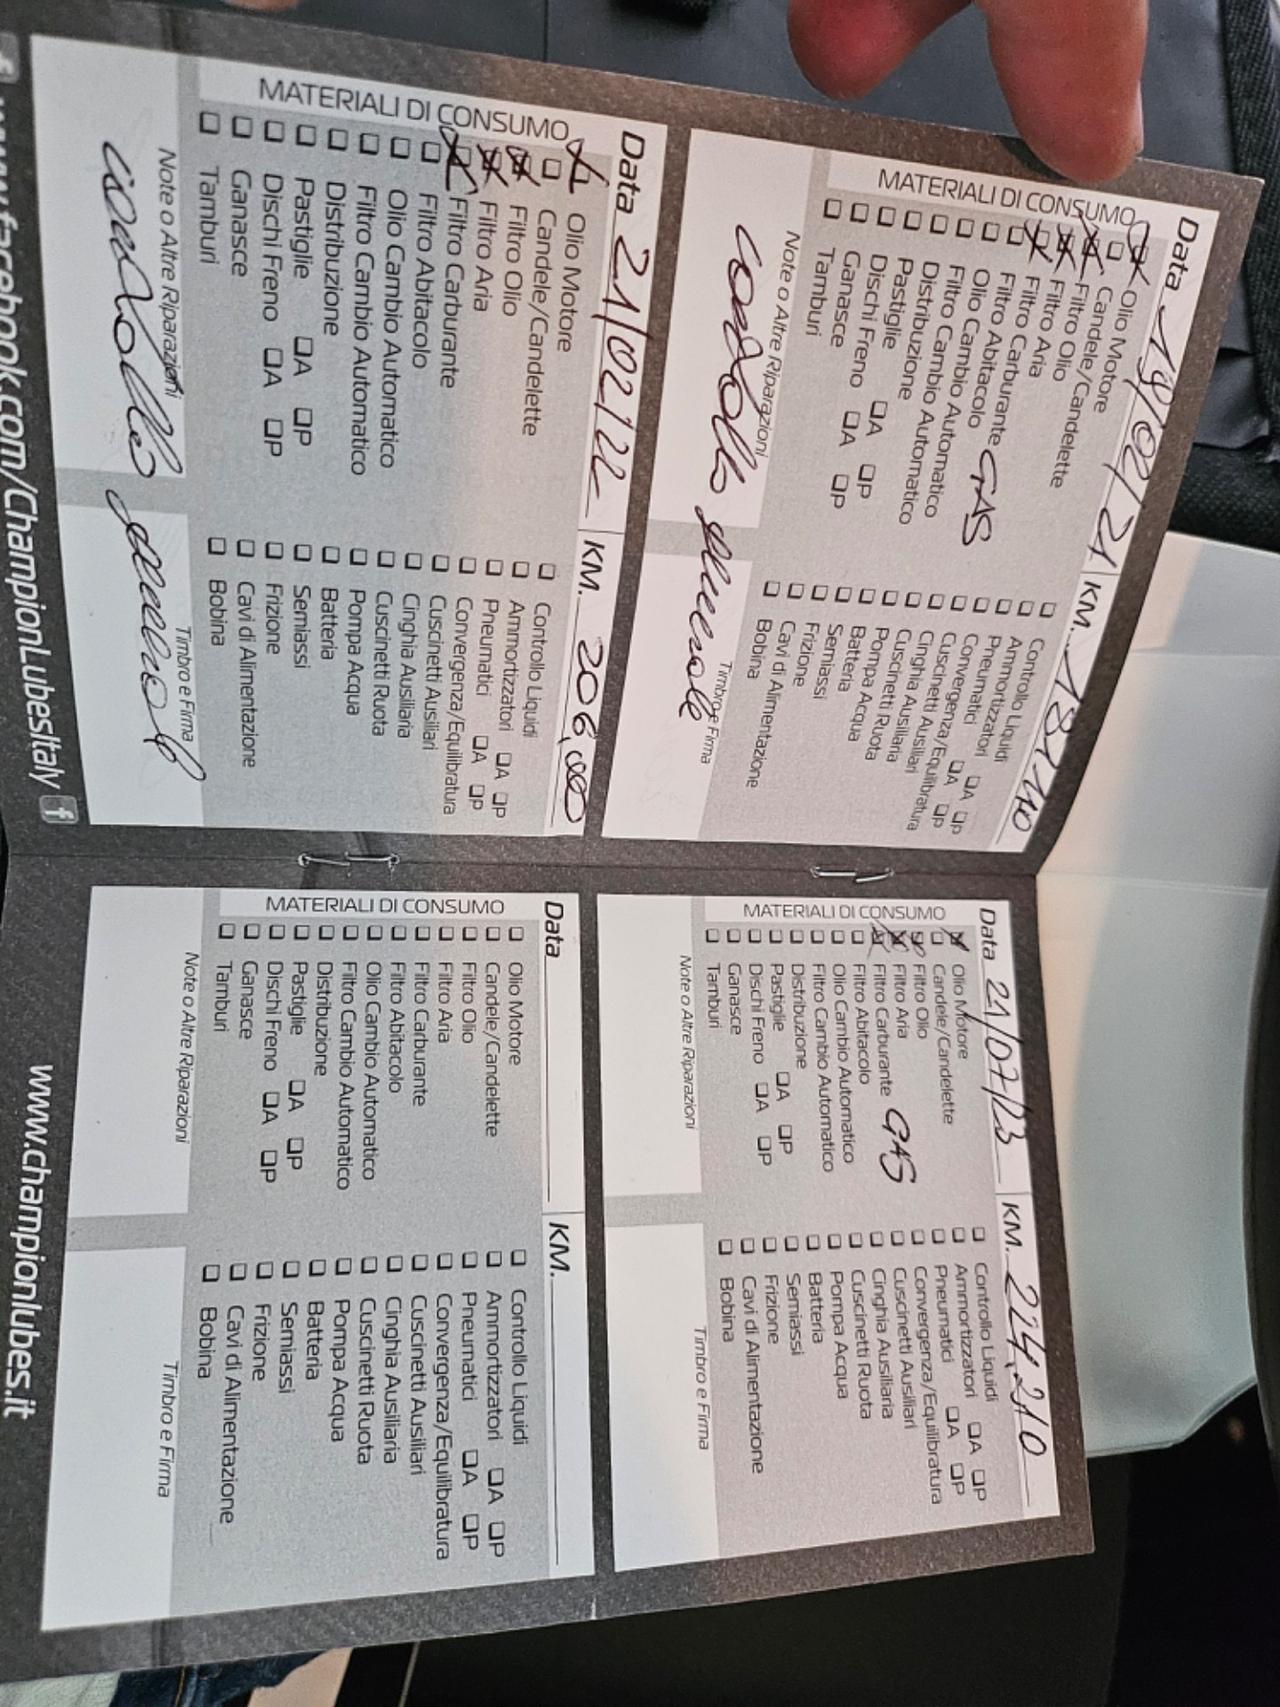 Data 19/02/21 KM. 182410
MATERIALI DI CONSUMO
Olio Motore
Candele/Candelette
Filtro Olio
Filtro Aria
Filtro Carburante GAS
Filtro Abitacolo
Olio Cambio Automatico
Filtro Cambio Automatico
Distribuzione
Pastiglie A P
Dischi Freno A P
Ganasce
Tamburi
Controllo Liquidi
Ammortizzatori A P
Pneumatici A P
Convergenza/Equilibratura
Cuscinetti Ausiliari
Cinghia Ausiliaria
Cuscinetti Ruota
Pompa Acqua
Batteria
Semiassi
Frizione
Cavi di Alimentazione
Bobina
Note o Altre Riparazioni
Timbro e Firma
controllo generale
Data 21/02/22 KM. 206,000
MATERIALI DI CONSUMO
Olio Motore
Candele/Candelette
Filtro Olio
Filtro Aria
Filtro Carburante
Filtro Abitacolo
Olio Cambio Automatico
Filtro Cambio Automatico
Distribuzione
Pastiglie A P
Dischi Freno A P
Ganasce
Tamburi
Controllo Liquidi
Ammortizzatori A P
Pneumatici A P
Convergenza/Equilibratura
Cuscinetti Ausiliari
Cinghia Ausiliaria
Cuscinetti Ruota
Pompa Acqua
Batteria
Semiassi
Frizione
Cavi di Alimentazione
Bobina
Note o Altre Riparazioni
Timbro e Firma
controllo general
www.facebook.com/ChampionLubesItaly
Data 21/07/23 KM. 224.210
MATERIALI DI CONSUMO
Olio Motore
Candele/Candelette
Filtro Olio
Filtro Aria
Filtro Carburante GAS
Filtro Abitacolo
Olio Cambio Automatico
Filtro Cambio Automatico
Distribuzione
Pastiglie A P
Dischi Freno A P
Ganasce
Tamburi
Controllo Liquidi
Ammortizzatori A P
Pneumatici A P
Convergenza/Equilibratura
Cuscinetti Ausiliari
Cinghia Ausiliaria
Cuscinetti Ruota
Pompa Acqua
Batteria
Semiassi
Frizione
Cavi di Alimentazione
Bobina
Note o Altre Riparazioni
Timbro e Firma
Data KM.
MATERIALI DI CONSUMO
Olio Motore
Candele/Candelette
Filtro Olio
Filtro Aria
Filtro Carburante
Filtro Abitacolo
Olio Cambio Automatico
Filtro Cambio Automatico
Distribuzione
Pastiglie A P
Dischi Freno A P
Ganasce
Tamburi
Controllo Liquidi
Ammortizzatori A P
Pneumatici A P
Convergenza/Equilibratura
Cuscinetti Ausiliari
Cinghia Ausiliaria
Cuscinetti Ruota
Pompa Acqua
Batteria
Semiassi
Frizione
Cavi di Alimentazione
Bobina
Note o Altre Riparazioni
Timbro e Firma
www.championlubes.it